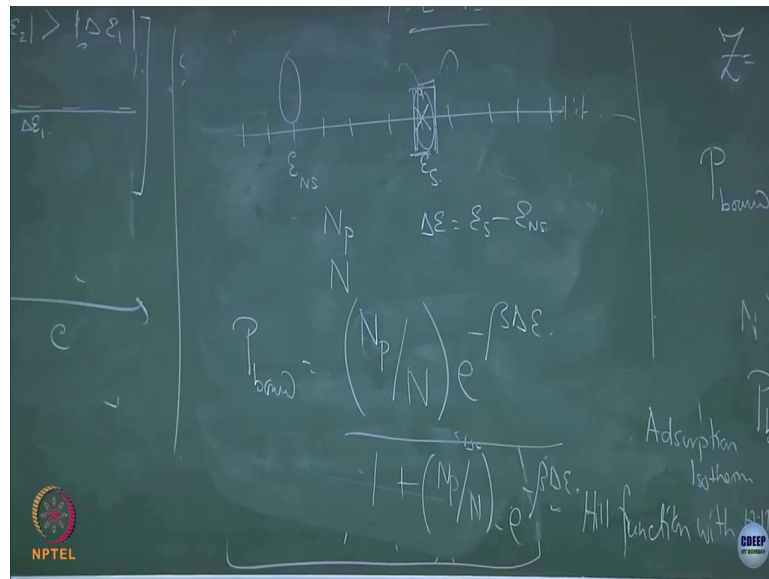 ε₂| > |Δε₁|
Δε₁.
C
ε_NS ε_S.
N_P Δε = ε_S - ε_NS
N
P_bound = (N_P/N) e^{-βΔε.}
1 + (N_P/N) e^{-βΔε.}
Z =
P_bound
N
Adsorption
Isotherm
Hill function with
NPTEL
CDEEP
IIT BOMBAY